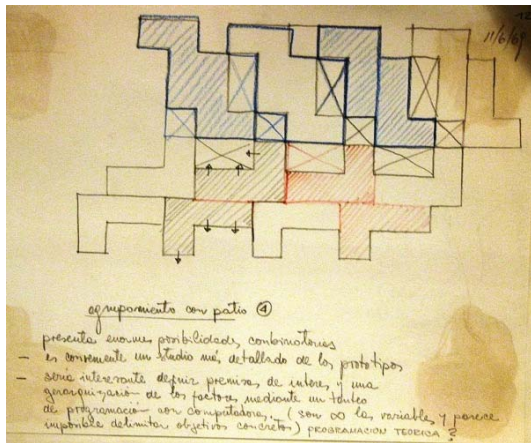 11/6/69
agrupamiento con patio ④
presenta enormes posibilidades combinatorias
– es conveniente un studio más detallado de los prototipos
– sería interesante definir premisas de interés, y una
gerarquización de los factores mediante un tanteo
de programación con computadora... (son ∞ las variables, y parece
imposible delimitar objetivos concretos) PROGRAMACION TEORICA ?